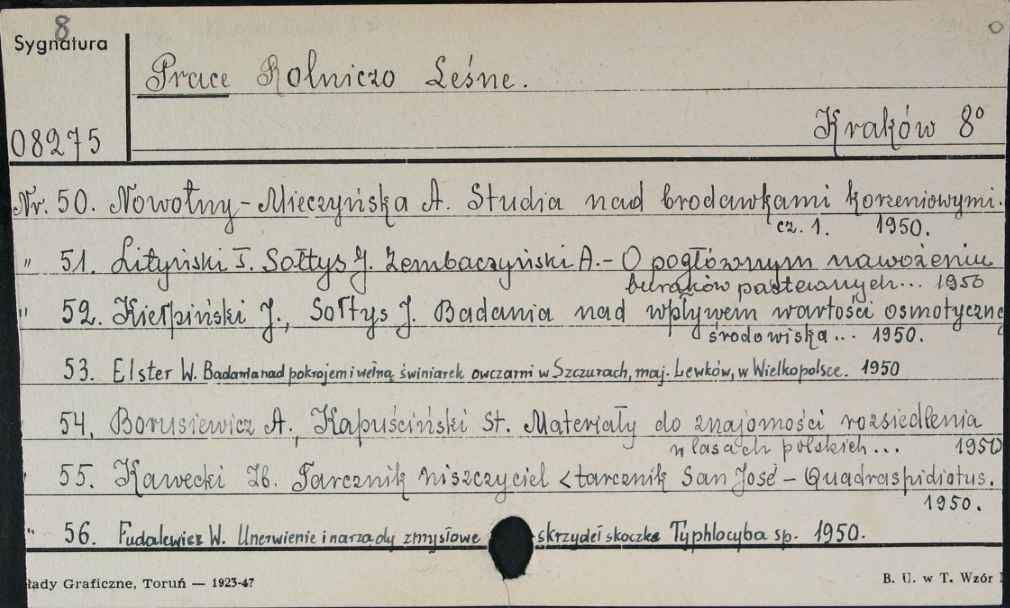 8
Sygnatura
Prace Rolniczo Leśne.
Kraków 8°
08275
Nr. 50. Nowotny-Mieczyńska A. Studia nad brodawkami korzeniowymi.
cz. 1. 1950.
" 51. Lityński T. Sołtys J. Zembaczyński A.- O pogłównym nawożeniu
buraków pastewnych... 1950
" 52. Kiełpiński J., Sołtys J. Badania nad wpływem wartości osmotyczne
środowiska... 1950.
53. Elster W. Badania nad pokrojem i wełną świniarek owczarni w Szczurach, maj. Lewków, w Wielkopolsce. 1950
54. Borusiewicz A., Kapuściński St. Materiały do znajomości rozsiedlenia
w lasach polskich... 1950
55. Kawecki Zb. Tarcznik niszczyciel <tarcznik San José - Quadraspidiotus.
1950.
" 56. Fudalewicz W. Unerwienie i narządy zmysłowe skrzydeł skoczka Typhlocyba sp. 1950.
łady Graficzne, Toruń — 1923-47
B. U. w T. Wzór